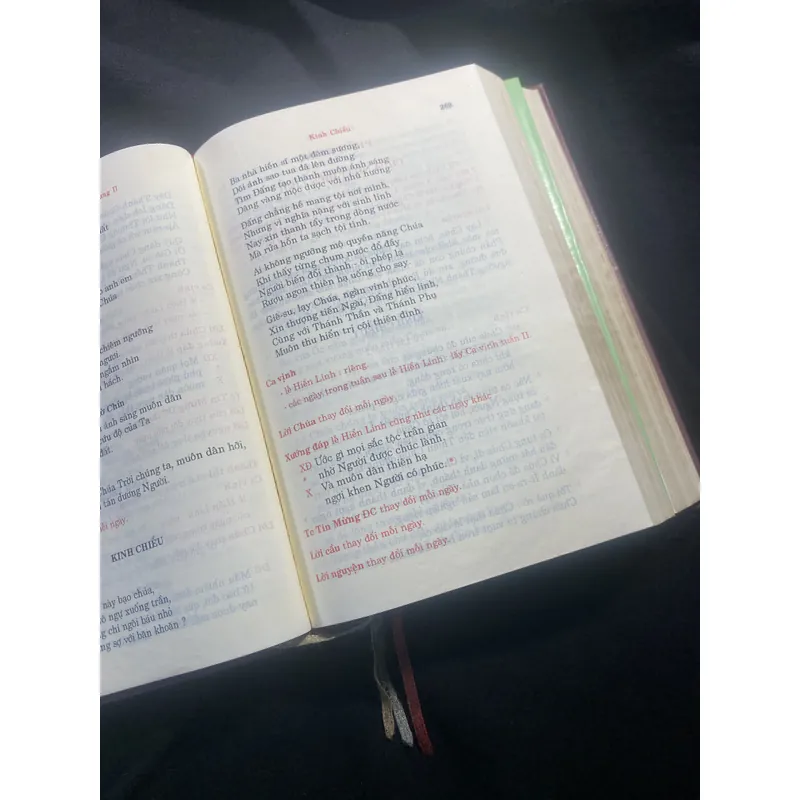 ng II
ất
o anh em
Chúa
chiêm ngưỡng
người.
ngắm nhìn
bách.
ơ Chín
ánh sáng muôn dân
cứu độ của Ta
đất.
húa Trời chúng ta, muôn dân hỡi,
tán dương Người.
i ngày.
KINH CHIỀU
này bạo chúa,
ngự xuống trần,
g chi ngôi báu nhỏ
ng sợ với băn khoăn ?
Kinh Chiều
Ba nhà hiền sĩ một đêm sương,
Dõi ánh sao tua đã lên đường
Tìm Đấng tạo thành muôn ánh sáng
Dâng vàng mộc dược với nhũ hương
Đấng chẳng hề mang tội nơi mình,
Nhưng vì nghĩa nặng với sinh linh
Nay xin thanh tẩy trong dòng nước
Mà rửa hồn ta sạch tội tình.
Ai không ngưỡng mộ quyền năng Chúa
Khi thấy từng chum nước đổ đầy
Người biến đổi thành : ôi phép lạ
Rượu ngon thiên hạ uống cho say.
Giê-su, lạy Chúa, ngàn vinh phúc,
Xin thượng tiến Ngài, Đấng hiển linh,
Cùng với Thánh Thần và Thánh Phụ
Muôn thu hiển trị cõi thiên đình.
Ca vịnh
. lễ Hiển Linh : riêng.
. các ngày trong tuần sau lễ Hiển Linh : lấy Ca vịnh tuần II
Lời Chúa thay đổi mỗi ngày.
Xướng đáp lễ Hiển Linh cũng như các ngày khác
XĐ Ước gì mọi sắc tộc trần gian
* nhờ Người được chúc lành.
X Và muôn dân thiên hạ
ngợi khen Người có phúc.*
Tc Tin Mừng ĐC thay đổi mỗi ngày.
Lời cầu thay đổi mỗi ngày.
Lời nguyện thay đổi mỗi ngày.